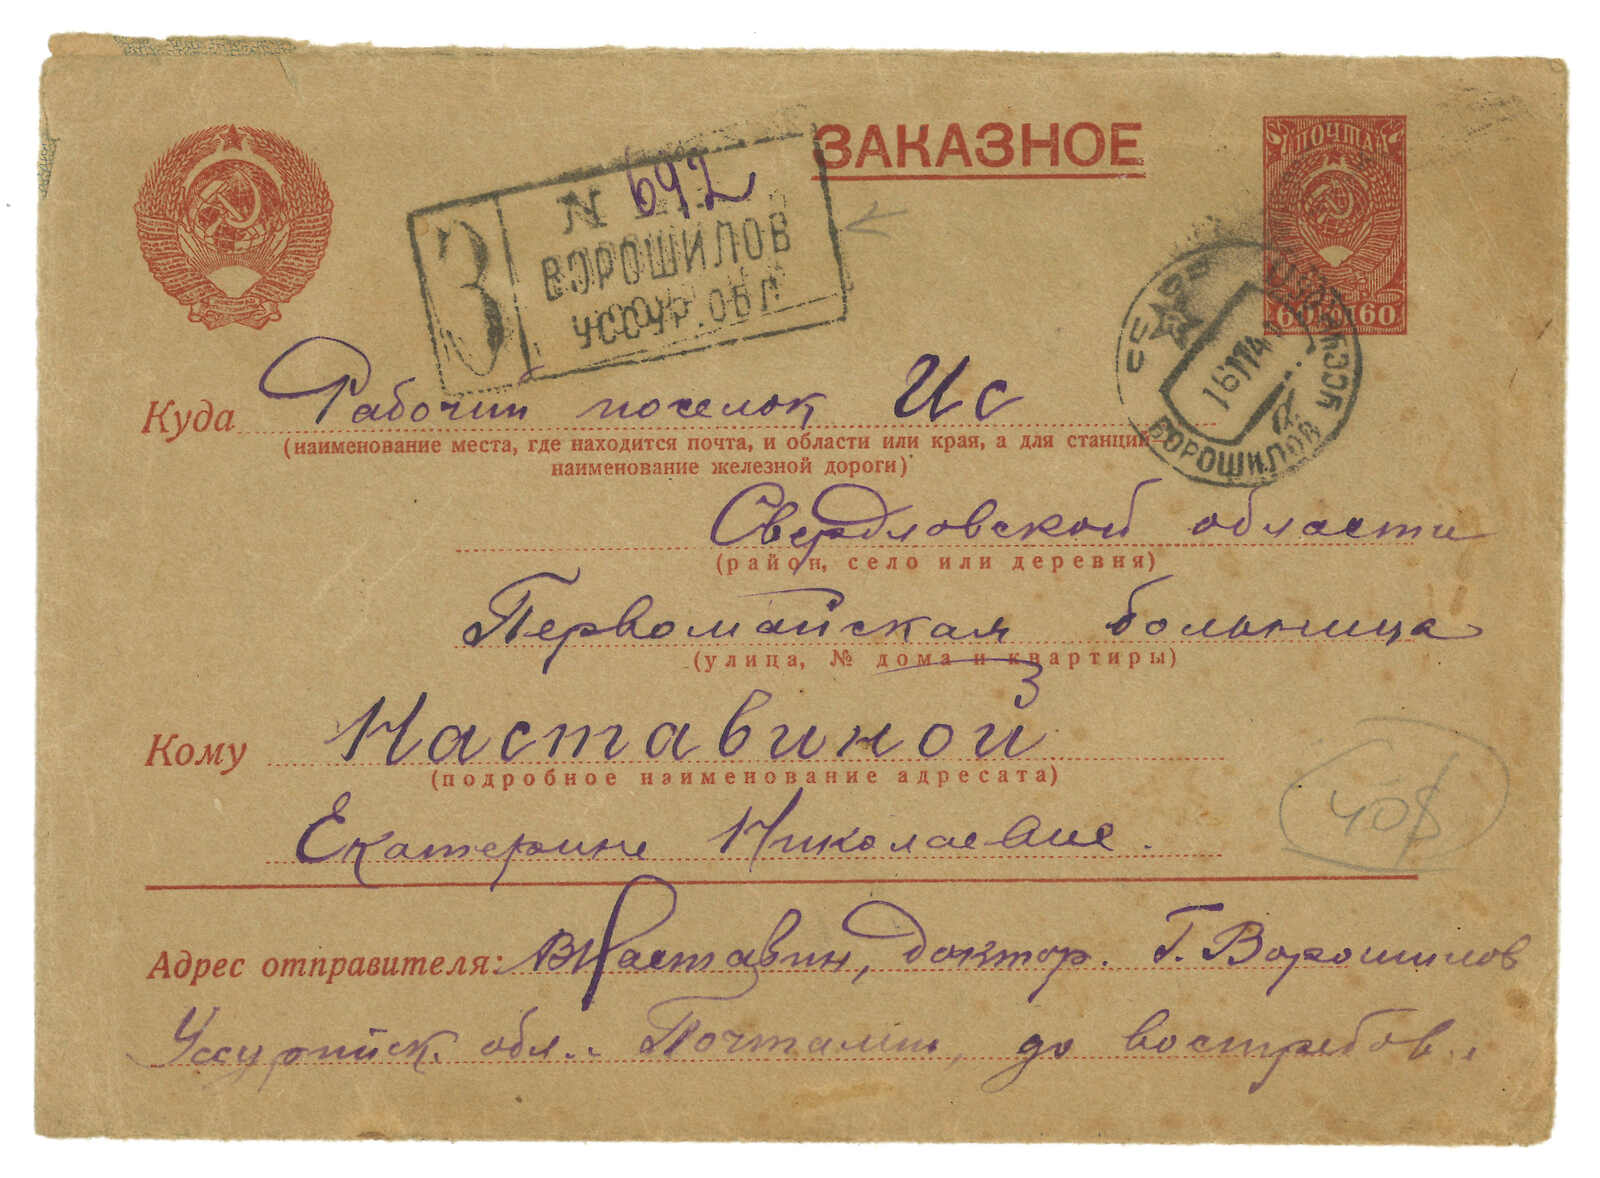 ЗАКАЗНОЕ
ПОЧТА
60 60
З
N 692
ВОРОШИЛОВ
УССУР. ОБЛ
СССР
ВОРОШИЛОВ
Куда Рабочий поселок Ис
(наименование места, где находится почта, и области или края, а для станций—
наименование железной дороги)
Свердловской области
(район, село или деревня)
Первомайская больница
(улица, № дома и квартиры)
Кому Наставиной
(подробное наименование адресата)
Екатерине Николаевне.
40$
Адрес отправителя: В Наставин, доктор. Г. Ворошилов
Уссурийск. обл.. Почтамт, до востребов.